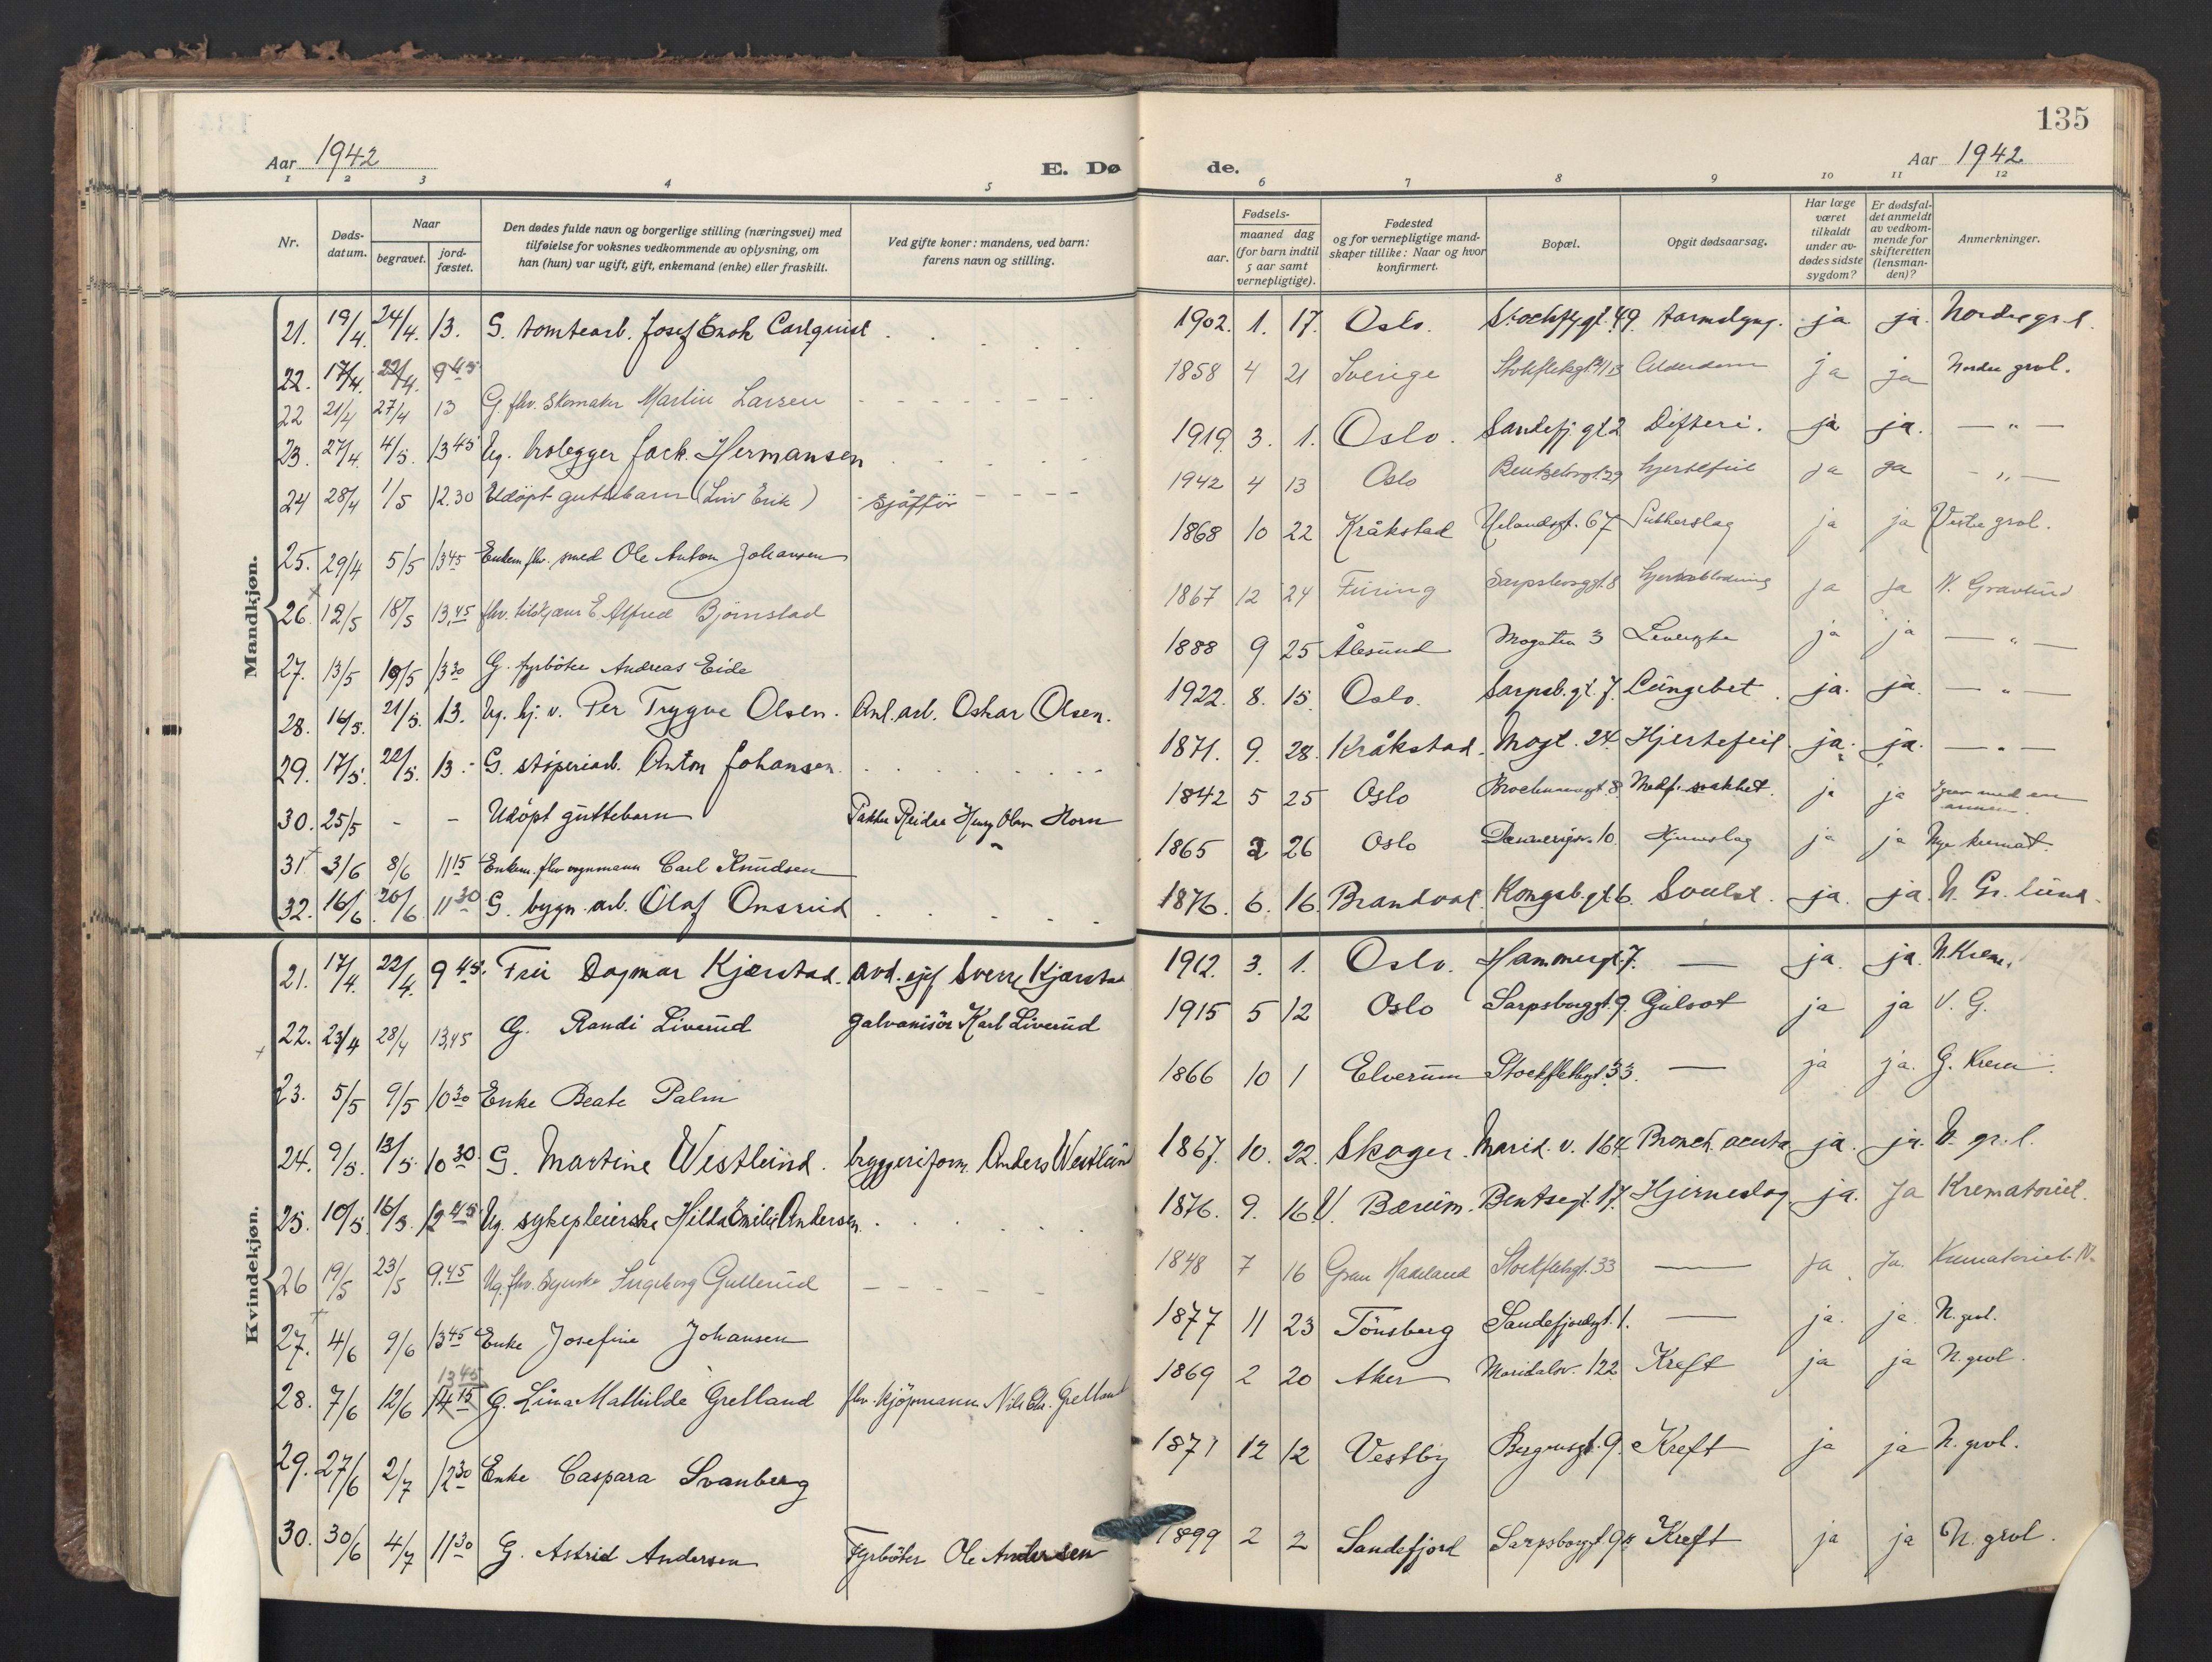 135
Aar 1942
E. Dø
de.
Aar 1942
1 2 3 4 5 6 7 8 9 10 11 12
Nr.
Døds-
datum.
Naar
begravet.
jord-
fæstet.
Den dødes fulde navn og borgerlige stilling (næringsvei) med
tilføielse for voksnes vedkommende av oplysning, om
han (hun) var ugift, gift, enkemand (enke) eller fraskilt.
Ved gifte koner: mandens, ved barn:
farens navn og stilling.
Fødsels-
aar.
maaned dag
(for barn indtil
5 aar samt
vernepligtige).
Fødested
og for vernepligtige mand-
skaper tillike: Naar og hvor
konfirmert.
Bopæl.
Opgit dødsaarsag.
Har læge
været
tilkaldt
under av-
dødes sidste
sygdom?
Er dødsfal-
det anmeldt
av vedkom-
mende for
skifteretten
(lensman-
den)?
Anmerkninger.
Mandkjøn.
21. 19/4. 24/4. 13. G. tomtearb. Josef Enok Carlquist 1902. 1. 17. Oslo. 49. ja ja. Nordre gr. l.
22. 17/4. 22/4. 9 45
22 21/4 27/4 13 G. fhv. Skomaker Martin Larsen 1858 4 21 Sverige Alderdom ja ja Nordre grol.
23. 27/4. 4/5. 13 45 Ug. Jack. Hermansen 1919. 3. 1. Oslo. Sandefj. gt. 2 Difteri. ja ja. — " —
24 28/4 1/5 12.30 Udöpt guttebarn (Liv Erik) sjåfför 1942 4 13 Oslo hjertefeil ja ja - " -
25. 29/4 5/5 13 45 Enkem. fhv. smed Ole Anton Johansen 1868 10 22 Kråkstad Uelandsgt. 67 ja ja Vestre grol.
26. 12/5 18/5 13,45 fhv. E. Alfred Bjørnstad 1867 12 24 Sarpsborggt. 8 ja ja V. Gravlund
27. 13/5 19/5 13 30 G. fyrböter Andreas Eide 1888 9 25 Ålesund Mogata 3 ja ja — " —
28. 16/5. 21/5. 13. Ug. hj. v. Per Trygve Olsen. Anl. arb. Oskar Olsen. 1922. 8. 15. Oslo. Sarpsb. gt. 7. Lungebet. ja. ja. — " —
29. 17/5. 22/5. 13. - G. støperiarb. Anton Johansen. 1871. 9. 28. Kråkstad. Mogt. 24. Hjertefeil. ja. ja. — " —
30. 25/5 - - Udöpt guttebarn Reidar Henry Olav Horn 1942 5 25 Oslo Medf. svakhet. ja ja
31 3/6 8/6 11 15 Enkem. fhv. vognmann Carl Knudsen 1865 2 26 Oslo 10. ja ja Nye kremat.
32. 16/6. 20/6. 11 30 G. bygn. arb. Olaf Onsrud 1876. 6. 16. Brandval. Kongsb. gt. 6. Svulst. ja. ja. N. Gr. lund.
Kvindekjøn.
21. 17/4. 22/4. 9 45. Fru Dagmar Kjærstad. avd. sjef Sverre Kjærstad 1912. 3. 1. Oslo. Hammergt. 7. — ja. ja. N. Krem.
22. 23/4 28/4 13,45 G. Randi Liverud galvanisör Karl Liverud 1915 5 12 Oslo Sarpsborggt. 9. Gulsot ja ja V. G.
23. 5/5 9/5 10 30 Enke Beate Palm 1866 10 1 Elverum Stockflethsgt. 33. — ja ja. G. Krem.
24. 9/5. 13/5. 10 30. G. Martine Westlund. byggeriform. Anders Westlund 1867. 10. 22. Skoger. Marid. v. 164 Bronch. acuta ja. ja. N. gr. l.
25. 10/5. 16/5. 12 45. Ug. sykepleierske Hilda Emilie Andersen. 1876. 9. 16. V. Bærum. Bentsegt. 17. Hjerneslag ja. Ja Krematoriet.
26 19/5 23/5 9.45 Ug. fhv. Syerske Ingeborg Gullerud 1848 7 16 Gran Hadeland Stockflethsgt. 33 — ja ja. Krematoriet. N.
27. 4/6 9/6 13 45 Enke Josefine Johansen 1877 11 23 Tönsberg Sandefjordgt. 1. — ja. ja. N. grl.
13 45
28. 7/6 12/6 14 15 G. Lina Mathilde Grelland fhv. kjöpmann Nils Chr. Grelland 1869 2 20 Aker Maridalsv. 122 Kreft ja ja N. grol.
29. 27/6 2/7 12 30 Enke Caspara Svanberg 1871 12 12 Vestby Bergensgt. 9. Kreft ja ja N. grol.
30. 30/6 4/7 11 30 G. Astrid Andersen Fyrböter Ole Andersen 1899 2 2 Sandefjord Sarpsborggt. 9 Kreft ja ja N. grol.